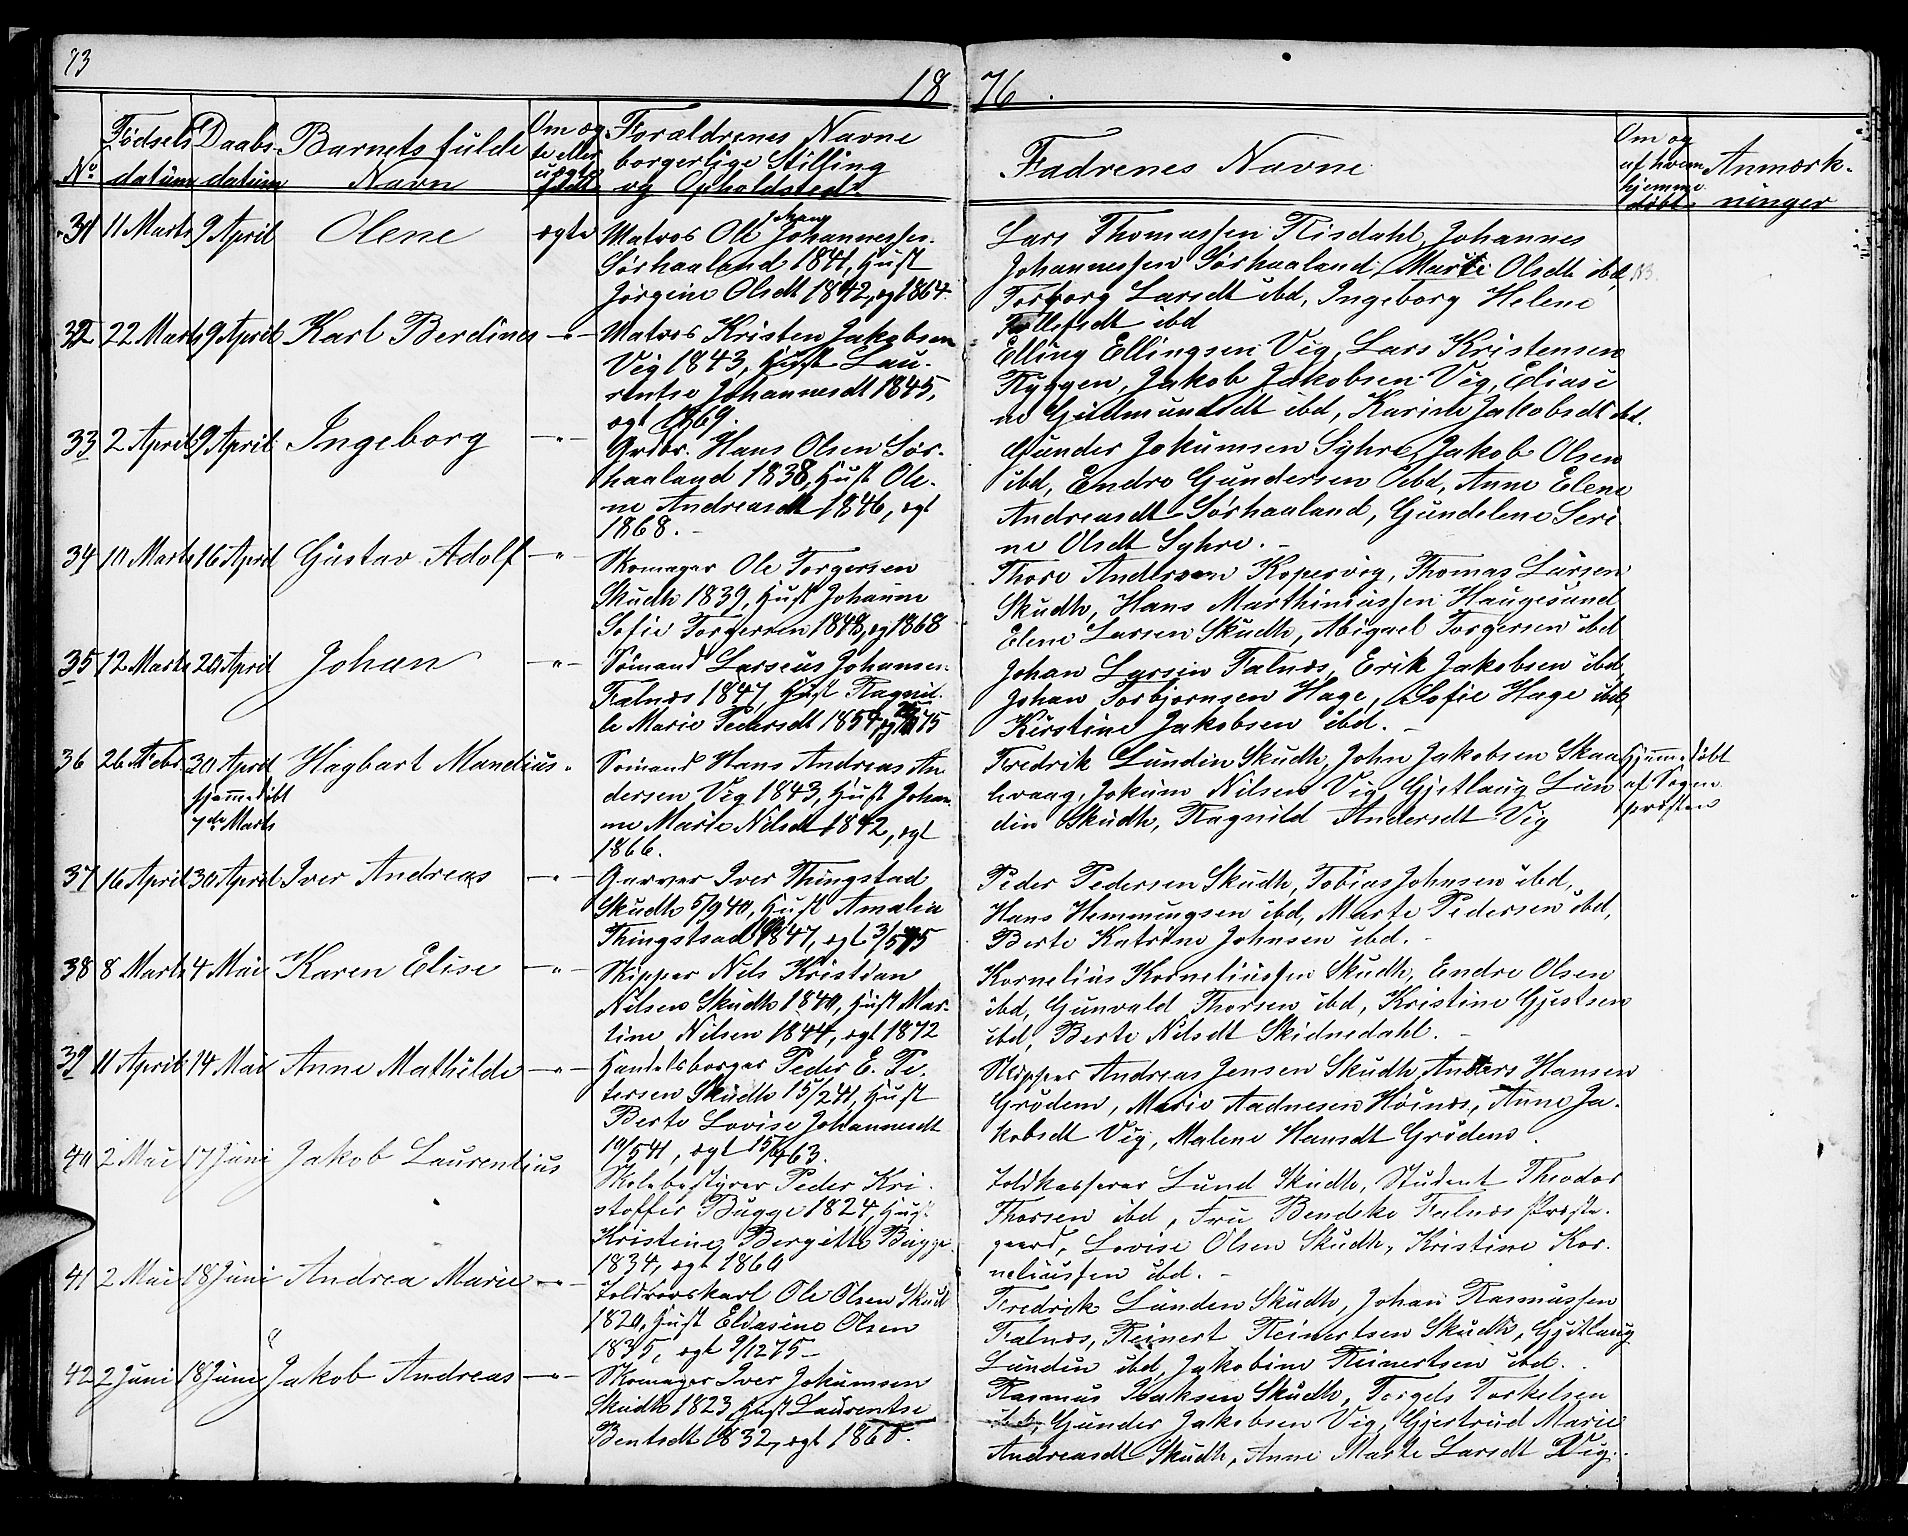 73
18 76.
No
Fødsels
datum
Daabs-
datum
Barnets fulde
Navn
Om æg
te eller
uægte
født
Forældrenes Navne
borgerlige Stilling
og Opholdsted.
Fadrenes Navne
Om og
af hvem
hjemme
døbt
Anmærk-
ninger
31 11 Marts 9 April Olene ægte
Matros Ole Johan Johannessen
Sørhaaland 1841, Hust
Jørgine Olsdt 1842, ægt 1864.
Lars Thomassen Risdahl, Johannes
Johannessen Sørhaaland, Marte Olsdt ibd,
Torborg Larsdt ibd, Ingeborg Helene
Tollefsdt ibd
32 22 Marts 9 April Karl Berdines -"-
Matros Kristen Jakobsen
Vig 1843, Hust Lau-
rentse Johannesdt 1845,
ægt 1869.
Elling Ellingsen Vig, Lars Kristensen
Ryggen, Jakob Jakobsen Vig, Eliasi
ne Gudmundsdt ibd, Karine Jakobsdt ibd.
33 2 April 9 April Ingeborg -"-
Grdbr. Hans Olsen Sør-
haaland 1838, Hust Ole-
ne Andreasdt 1846, ægt
1868.-
Gunder Jokumsen Syhre, Jakob Olsen
ibd, Endre Gundersen ibd, Anne Elene
Andreasdt Sørhaaland, Gundelene Seri
ne Olsdt Syhre.-
34 10 Marts 16 April Gustav Adolf -"-
Skomager Ole Torgersen
Skudh 1839, Hust Johanne
Sofie Torgersen 1848, ægt 1868
Thore Andersen Kopervig, Thomas Larsen
Skudh, Hans Marthiniussen Haugesund
Elene Larsen Skudh, Abigael Torgersen ibd
35 12 Marts 20 April Johan -"-
Sømand Larseus Johansen
Falnæs 1847, Hust Ragnil-
le Marie Pedersdt 1854, ægt 1875
Johan Larsen Falnæs, Erik Jakobsen ibd,
Johan Torbjørnsen Hage, Sofie Hage ibd,
Kirstine Jakobsen ibd.-
36 26 Febr 30 April Hagbart Mandius "
hjemmedøbt
7de Marts
Sømand Hans Andreas An
dersen Vig 1843, Hust Johan
ne Marte Nilsdt 1842, ægt
1866.
Fredrik Lunden Skudh, John Jakobsen Skaa
levaag, Jokum Nilsen Vig, Gjetlaug Lun
din Skudh, Ragnild Andersdt Vig
Hjemmedøbt
af Sogne
præsten
37 16 April 30 April Iver Andreas -"-
Garver Iver Thingstad
Skudh 5/9 40, Hust Amalia
Thingstad 1847, ægt 3/5 75
Peder Pedersen Skudh, Tobias Johnsen ibd,
Hans Hemmingsen ibd, Marte Pedersen ibd,
Berte Katrine Johnsen ibd.-
38 8 Marts 4 Mai Karen Elise -"-
Skipper Nils Kristian
Nilsen Skudh 1840, Hust Mar-
tine Nilsen 1844, ægt 1872
Kornelius Korneliussen Skudh, Endre Olsen
ibd, Gunvald Thorsen ibd, Kristine Gjestsen
ibd, Berte Nilsdt Skidnedahl.-
39 11 April 14 Mai Anne Mathilde -"-
Handelsborger Peder E. Pe-
tersen Skudh 15/2 41, Hust
Berte Lovise Johannesdt
19/5 41, ægt 15/4 63.
Skipper Andreas Jensen Skudh, Anders Hansen
Grødem, Marie Aadnesen Høinæs, Anne Ja-
kobsdt Vig, Malene Hansdt Grødem.
40 2 Mai 17 Juni Jakob Laurentius
Skolebestyrer Peder Kri-
stoffer Bugge 1824, Hust
Kristine Bergitte Bugge
1834, ægt 1860
Toldkasserer Lund Skudh, Student Theodor
Thorsen ibd, Fru Bendeke Falnæs Præste-
gaard, Lovise Olsen Skudh, Kristine Kor-
neliussen ibd.-
41 2 Mai 18 Juni Andrea Marie -"-
Toldrorskarl Ole Olsen Skudh
1820, Hust Eliasine Olsen
1835, ægt 9/12 75-
Fredrik Lunden Skudh, Johan Rasmussen
Falnæs, Reinert Reinertsen Skudh, Gjetlaug
Lundin ibd, Jakobine Reinertsen ibd.
42 2 Juni 18 Juni Jakob Andreas -"-
Skomager Iver Jokumsen
Skudh 1823, Hust Laurentse
Bentsdt 1832, ægt 1860.
Rasmus Isaksen Skudh, Torgels Torkelsen
ibd, Gunder Jakobsen Vig, Gjertrud Marie
Andreasdt Skudh, Anne Marte Larsdt Vig.